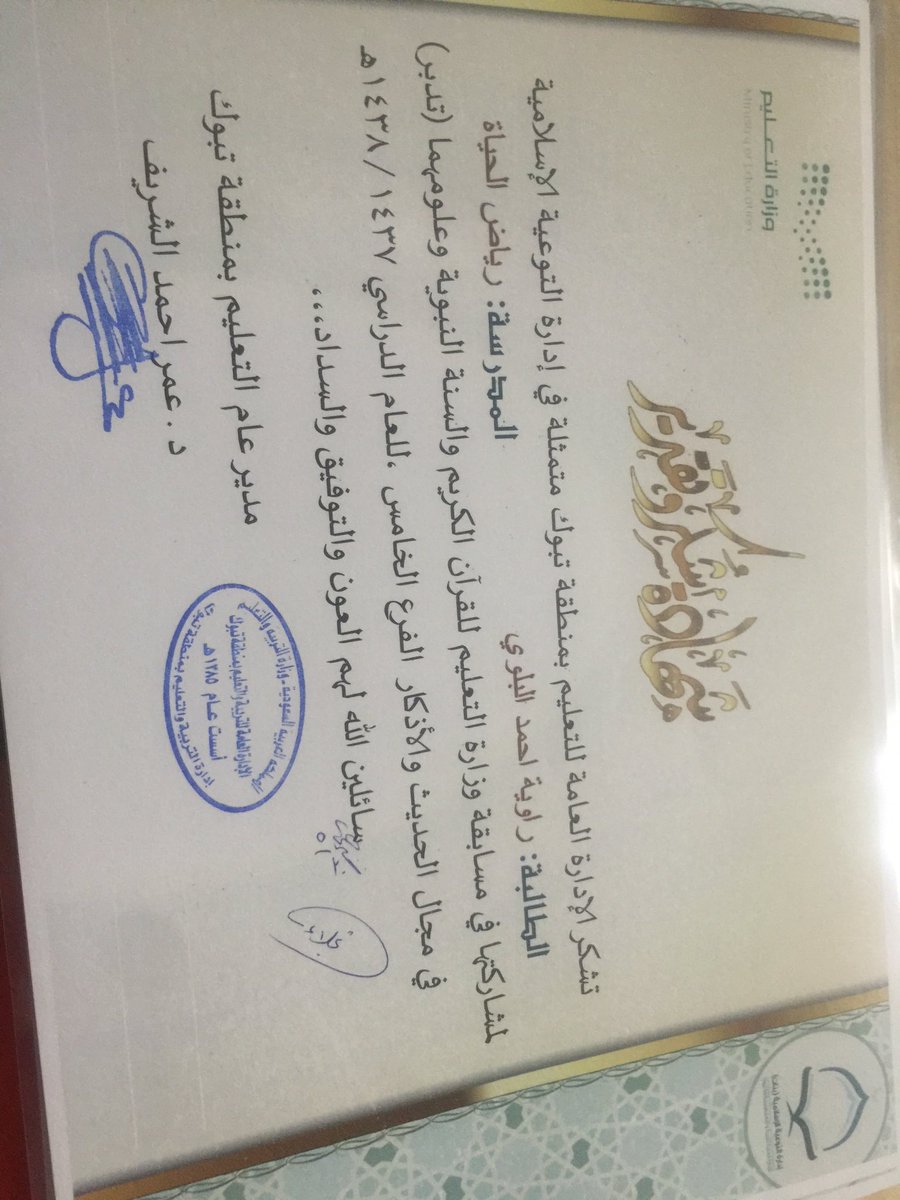 وزارة التعليم
Ministry of Education
شهادة شكر وتقدير
تشكر الإدارة العامة للتعليم بمنطقة تبوك متمثلة في إدارة التوعية الإسلامية
الطالبة: راوية احمد البلوي المدرسة: رياض الحياة
لمشاركتها في مسابقة وزارة التعليم للقرآن الكريم والسنة النبوية وعلومهما (تدبر)
في مجال الحديث والأذكار الفرع الخامس ،للعام الدراسي ١٤٣٧/ ١٤٣٨هـ
سائلين الله لهم العون والتوفيق والسداد،،،
مدير عام التعليم بمنطقة تبوك
د. عمر احمد الشريف
المملكة العربية السعودية - وزارة التربية والتعليم
الإدارة العامة للتربية والتعليم بمنطقة تبوك
أسست عام ١٣٨٥هـ
إدارة التربية والتعليم بمنطقة تبوك